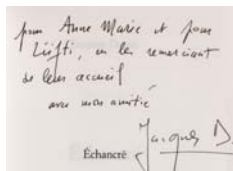 pour Anne Marie et pour
, en les remerciant
de leur accueil
avec mon amitié
Jacques D.
Échancré